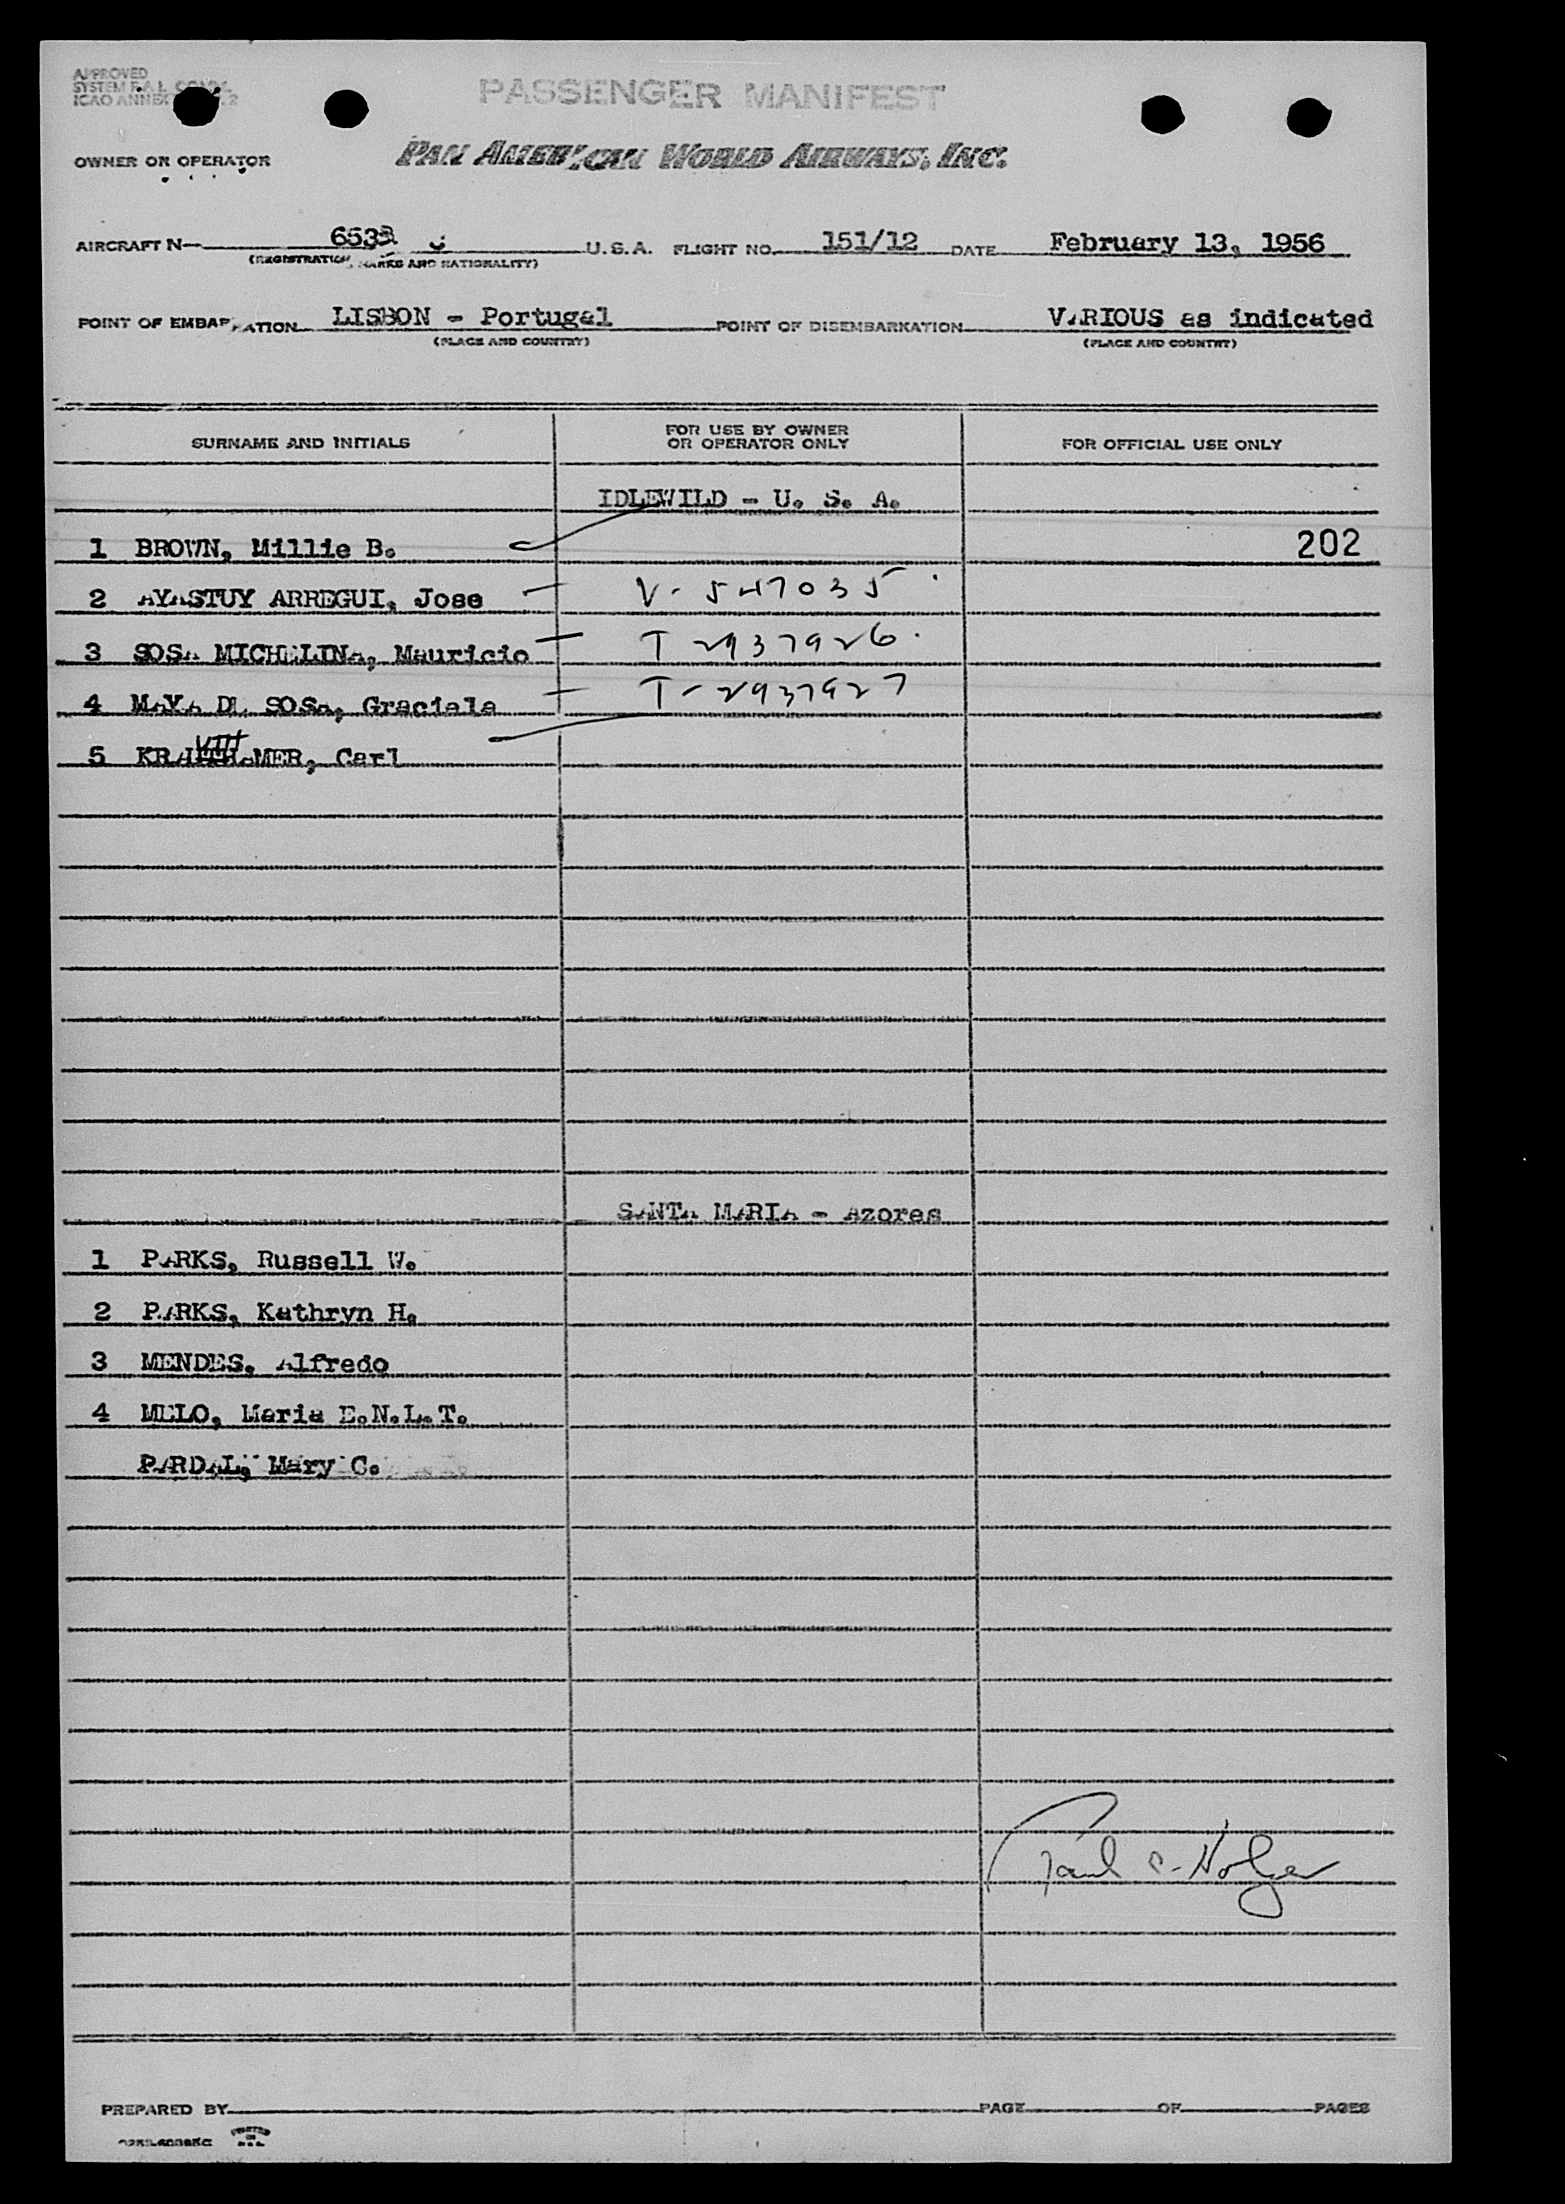 APPROVED
SYSTEM F.A.L.
ICAO ANNEX 2
PASSENGER MANIFEST
OWNER OR OPERATOR PAN AMERICAN WORLD AIRWAYS, INC.
AIRCRAFT N— U.S.A. FLIGHT NO. 151/12 DATE February 13, 1956
(REGISTRATION MARKS AND NATIONALITY)
POINT OF EMBARKATION LISBON - Portugal POINT OF DISEMBARKATION VARIOUS as indicated
(PLACE AND COUNTRY) (PLACE AND COUNTRY)
SURNAME AND INITIALS FOR USE BY OWNER OR OPERATOR ONLY FOR OFFICIAL USE ONLY
IDLEWILD - U. S. A.
1 BROWN, Millie B. 202
2 AYASTUY ARREGUI, Jose V-547035
3 SOSA MICHELINA, Mauricio T 2937926
4 MAYA DE SOSA, Graciela T-2937927
5 Carl
SANTA MARIA - Azores
1 PARKS, Russell W.
2 PARKS, Kathryn H.
3 MENDES, Alfredo
4 MELO, Maria E.N.L.T.
PARDAL, Mary C.
Paul C. Holger
PREPARED BY PAGE OF PAGES
PRINTED
IN
U.S.A.